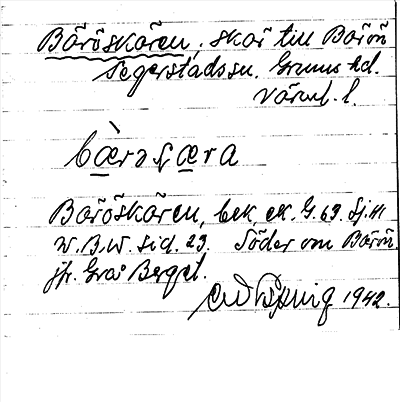 Böröskären, skär till Börön
Segerstads sn. Grums hd.
Värml. l.
bæ̀rəʂæra
Böröskären, bek. ek. G. 63. Sj. H
W. B. W. sid. 23. Söder om Börön
jfr. Grå Berget.
1942.